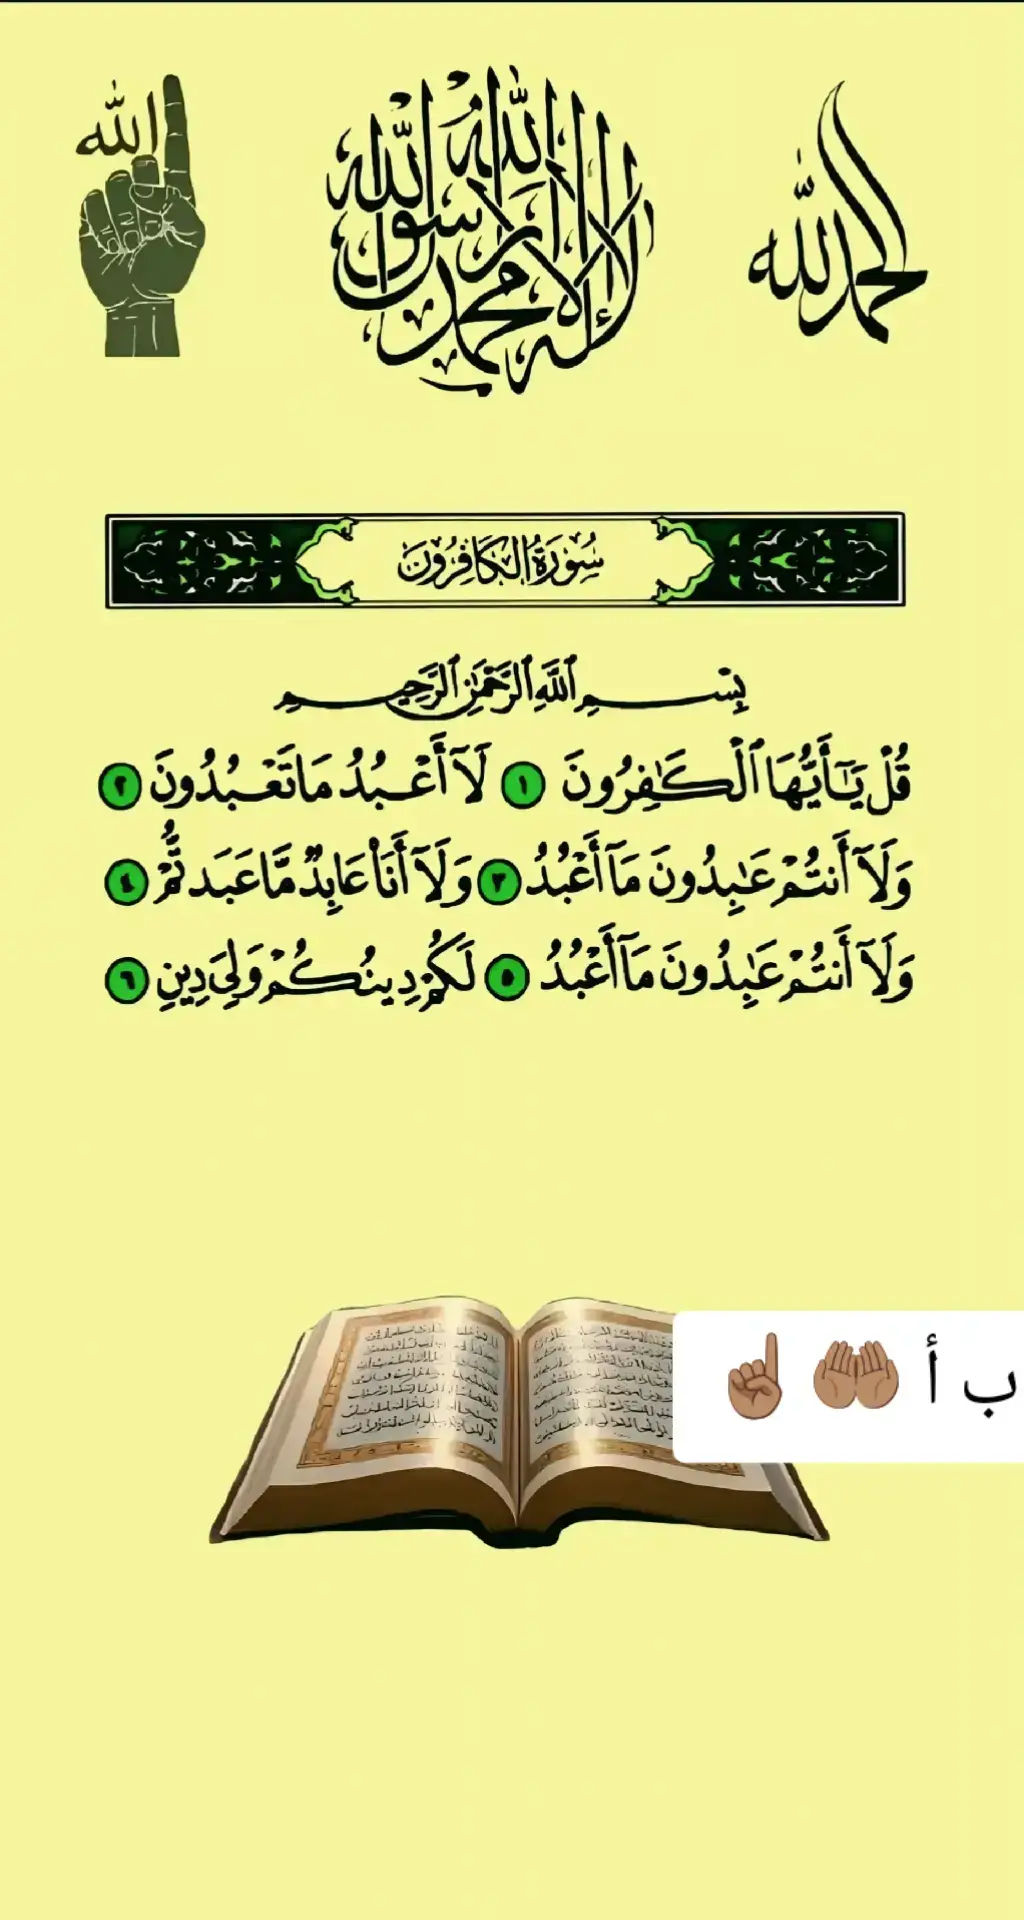 الله
لا إله إلا الله محمد رسول الله
الحمد لله
سُورَةُ الكَافِرُونَ
بِسْمِ ٱللَّهِ ٱلرَّحْمَٰنِ ٱلرَّحِيمِ
قُلْ يَٰٓأَيُّهَا ٱلْكَٰفِرُونَ ١ لَآ أَعْبُدُ مَا تَعْبُدُونَ ٢
وَلَآ أَنتُمْ عَٰبِدُونَ مَآ أَعْبُدُ ٣ وَلَآ أَنَا۠ عَابِدٌ مَّا عَبَدتُّمْ ٤
وَلَآ أَنتُمْ عَٰبِدُونَ مَآ أَعْبُدُ ٥ لَكُمْ دِينُكُمْ وَلِىَ دِينِ ٦
ب أ 🤲🏽 ☝🏽